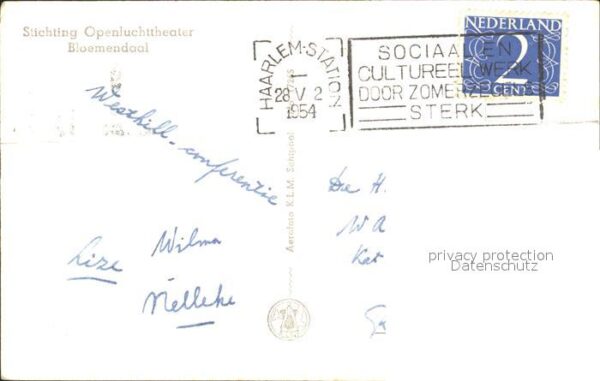 Stichting Openluchttheater
Bloemendaal
HAARLEM-STATION
28 V 2
1954
SOCIAAL EN
CULTUREEL WERK
DOOR ZOMERZEGELS
STERK
NEDERLAND
2
CENT
Westhill-conferentie
Wilma
Lize
Nelleke
Aerofoto K.L.M. Schiphol
De H.
WA
Kat
privacy protection
Datenschutz